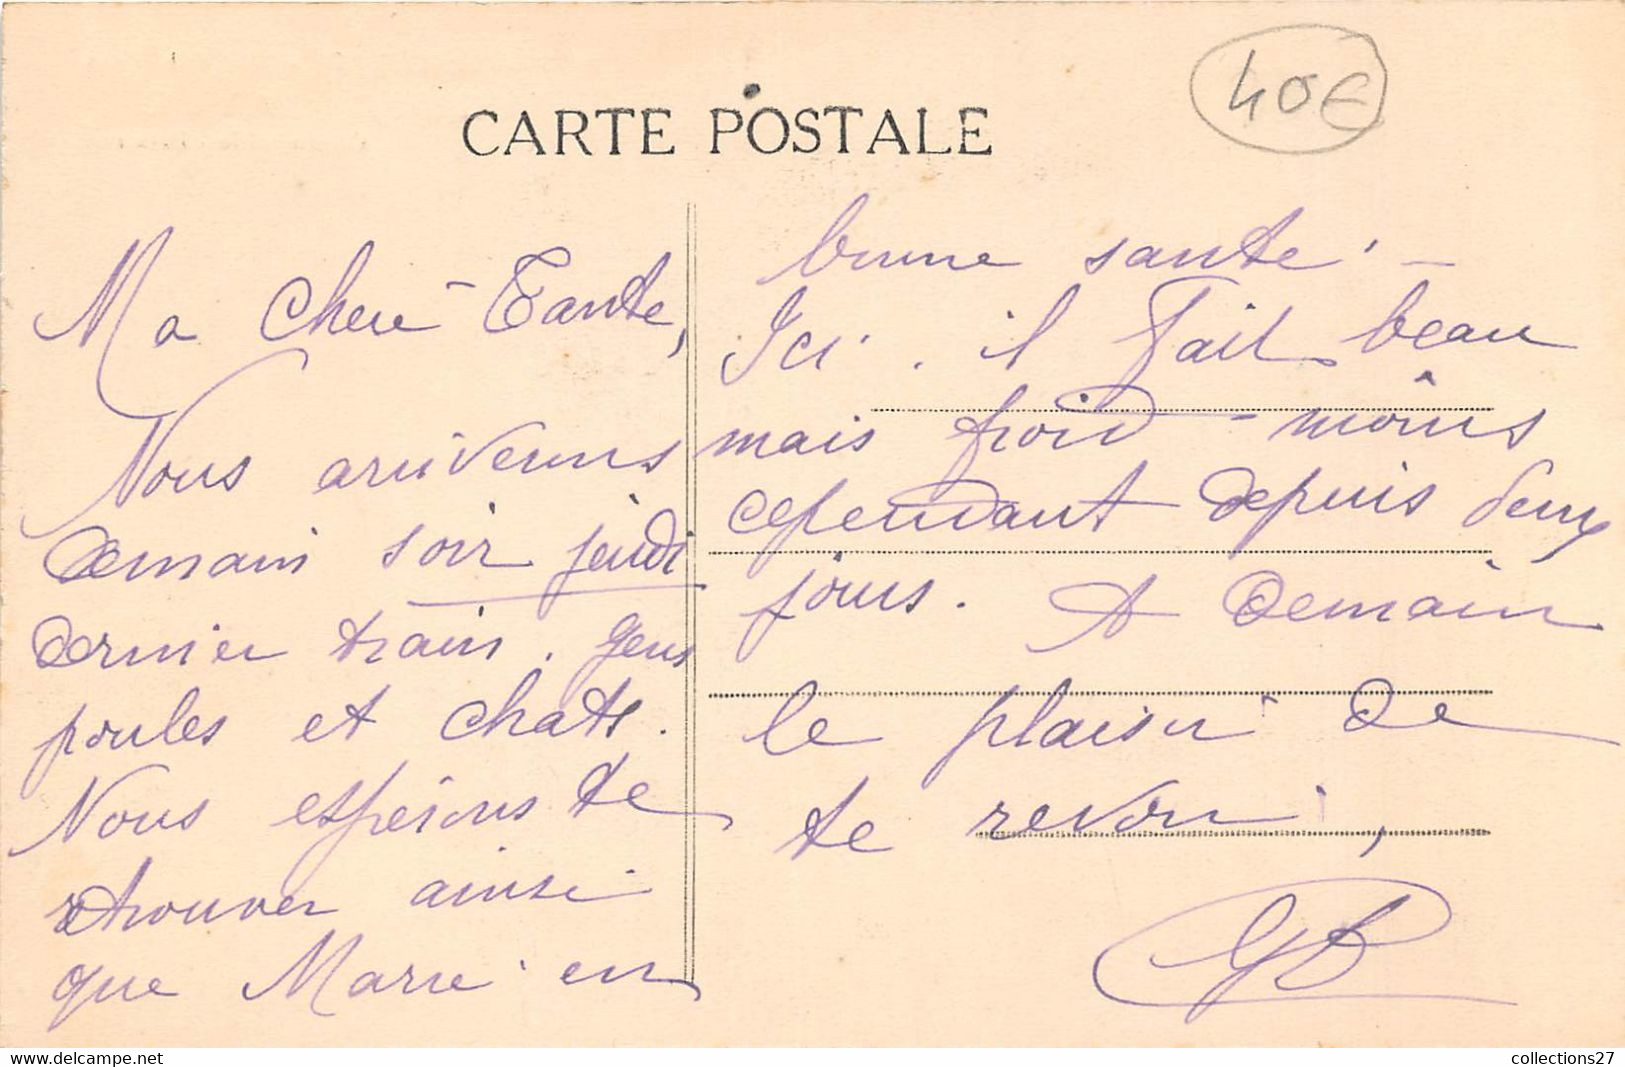 CARTE POSTALE
40€
Ma chère Tante,
Nous arriverons
demain soir jeudi
dernier train. gens
poules et chats.
Nous espérons te
retrouver ainsi
que Marie en
bonne santé. -
Ici. il fait beau
mais froid - moins
cependant depuis deux
jours. A demain
le plaisir de
te revoir,
GB
collections27